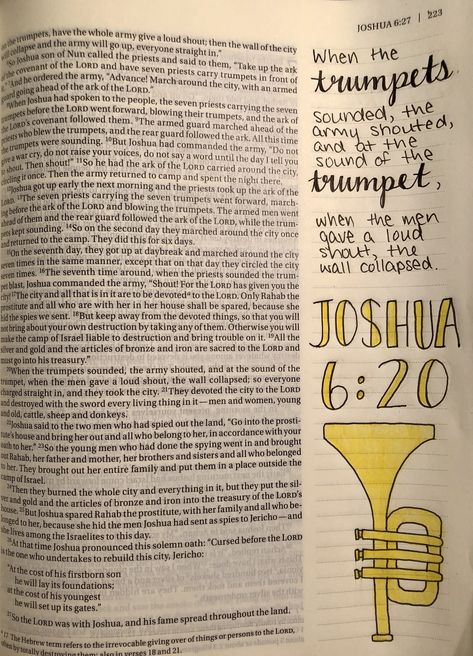 JOSHUA 6:27 | 223
the trumpets, have the whole army give a loud shout; then the wall of the city
will collapse and the army will go up, everyone straight in.”
So Joshua son of Nun called the priests and said to them, “Take up the ark
of the covenant of the LORD and have seven priests carry trumpets in front of
And he ordered the army, “Advance! March around the city, with an armed
guard going ahead of the ark of the LORD.”
When Joshua had spoken to the people, the seven priests carrying the seven
trumpets before the LORD went forward, blowing their trumpets, and the ark of
the LORD’s covenant followed them. 9The armed guard marched ahead of the
priests who blew the trumpets, and the rear guard followed the ark. All this time
the trumpets were sounding. 10But Joshua had commanded the army, “Do not
give a war cry, do not raise your voices, do not say a word until the day I tell you
shout. Then shout!” 11So he had the ark of the LORD carried around the city,
circling it once. Then the army returned to camp and spent the night there.
Joshua got up early the next morning and the priests took up the ark of the
LORD. 13The seven priests carrying the seven trumpets went forward, march-
ing before the ark of the LORD and blowing the trumpets. The armed men went
ahead of them and the rear guard followed the ark of the LORD, while the trum-
pets kept sounding. 14So on the second day they marched around the city once
and returned to the camp. They did this for six days.
15On the seventh day, they got up at daybreak and marched around the city
seven times in the same manner, except that on that day they circled the city
seven times. 16The seventh time around, when the priests sounded the trum-
pet blast, Joshua commanded the army, “Shout! For the LORD has given you the
city! 17The city and all that is in it are to be devoted a to the LORD. Only Rahab the
prostitute and all who are with her in her house shall be spared, because she
hid the spies we sent. 18But keep away from the devoted things, so that you will
not bring about your own destruction by taking any of them. Otherwise you will
make the camp of Israel liable to destruction and bring trouble on it. 19All the
silver and gold and the articles of bronze and iron are sacred to the LORD and
must go into his treasury.”
20When the trumpets sounded, the army shouted, and at the sound of the
trumpet, when the men gave a loud shout, the wall collapsed; so everyone
charged straight in, and they took the city. 21They devoted the city to the LORD
and destroyed with the sword every living thing in it—men and women, young
and old, cattle, sheep and donkeys.
Joshua said to the two men who had spied out the land, “Go into the prosti-
tute’s house and bring her out and all who belong to her, in accordance with your
oath to her.” 23So the young men who had done the spying went in and brought
out Rahab, her father and mother, her brothers and sisters and all who belonged
to her. They brought out her entire family and put them in a place outside the
camp of Israel.
24Then they burned the whole city and everything in it, but they put the sil-
ver and gold and the articles of bronze and iron into the treasury of the LORD’s
house. 25But Joshua spared Rahab the prostitute, with her family and all who be-
longed to her, because she hid the men Joshua had sent as spies to Jericho—and
she lives among the Israelites to this day.
At that time Joshua pronounced this solemn oath: “Cursed before the LORD
is the one who undertakes to rebuild this city, Jericho:
“At the cost of his firstborn son
he will lay its foundations;
at the cost of his youngest
he will set up its gates.”
27So the LORD was with Joshua, and his fame spread throughout the land.
a 17 The Hebrew term refers to the irrevocable giving over of things or persons to the LORD,
often by totally destroying them; also in verses 18 and 21.
When the
trumpets
sounded, the
army shouted,
and at the
sound of the
trumpet,
when the men
gave a loud
shout, the
wall collapsed.
JOSHUA
6:20